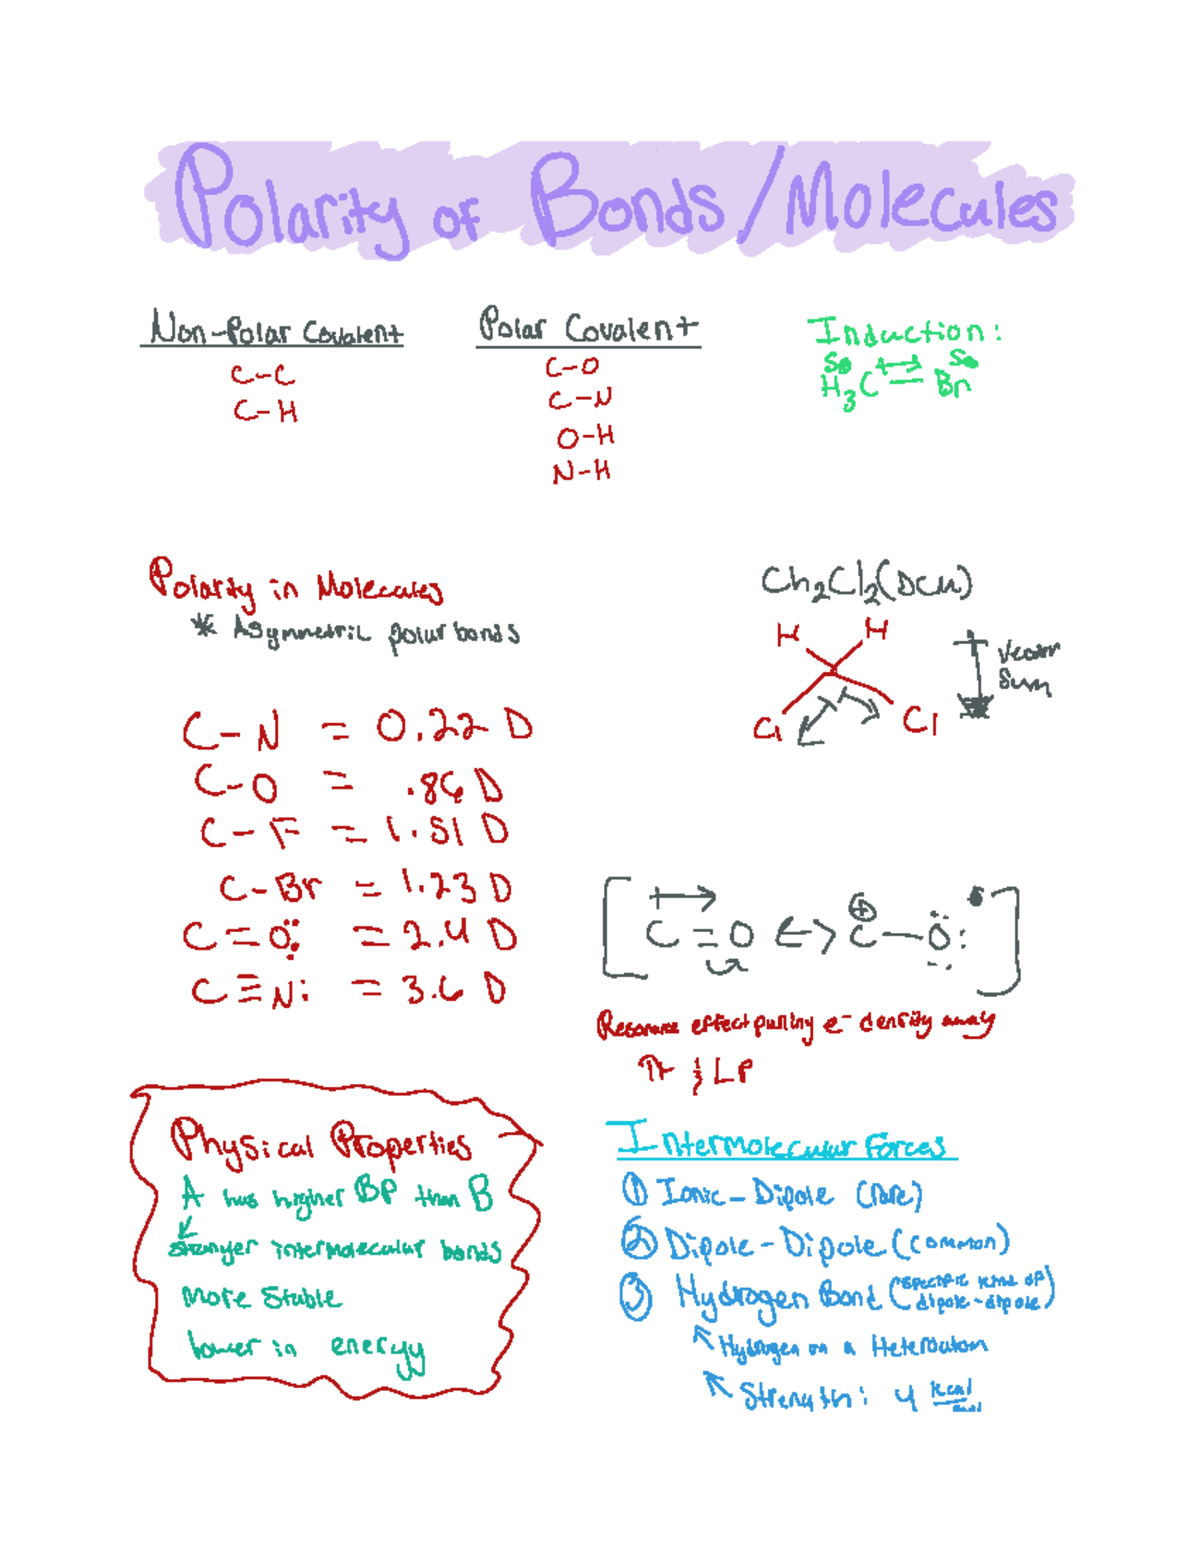 Polarity of Bonds/Molecules
Non-Polar Covalent
C-C
C-H
Polar Covalent
C-O
C-N
O-H
N-H
Induction:
H₃C Br
Polarity in Molecules
* Asymmetric polar bonds
C-N = 0.22 D
C-O = .86 D
C-F = 1.51 D
C-Br = 1.23 D
C=O: = 2.4 D
C≡N: = 3.6 D
Ch₂Cl₂(DCM)
H H
Cl Cl
Vector
Sum
[C=O <-> C-O:]
Resonance effect pulling e⁻ density away
π & LP
Physical Properties
A has higher BP than B
stronger intermolecular bonds
more stable
lower in energy
Intermolecular Forces
① Ionic-Dipole (rare)
② Dipole-Dipole (common)
③ Hydrogen Bond (specific kind of dipole-dipole)
Hydrogen on a Heteroatom
Strength: 4 kcal/mol